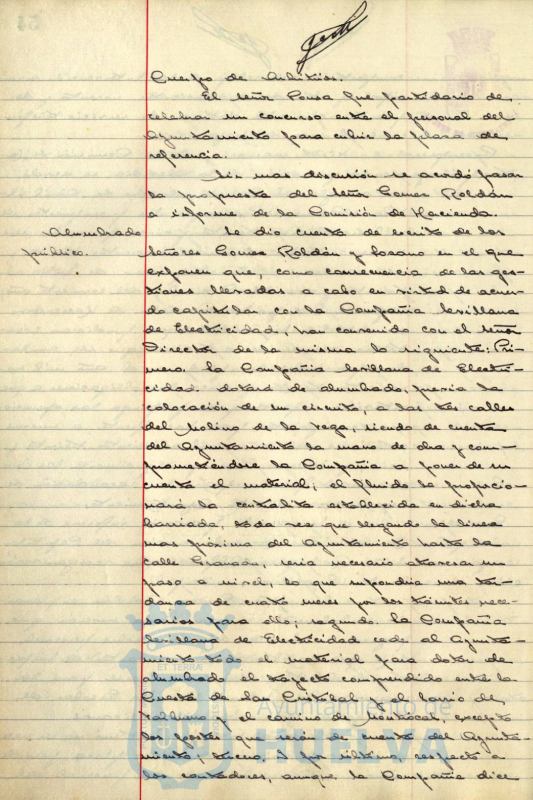 Cuerpo de Arbitrios.
El señor Ponsa fue partidario de
celebrar un concurso entre el personal del
Ayuntamiento para cubrir la plaza de
referencia.
Sin mas discusión se acordó pasar
la propuesta del señor Gomez Roldán
a informe de la Comisión de Hacienda.
Alumbrado
público.
Se dio cuenta de escrito de los
señores Gomez Roldán y Lozano en el que
exponen que, como consecuencia de las ges-
tiones llevadas a cabo en virtud de acuer-
do capitular con la Compañia Sevillana
de Electricidad, han convenido con el señor
Director de la misma lo siguiente: Pri-
mero. la Compañia Sevillana de Electri-
cidad, dotará de alumbrado, previa la
colocación de un circuito, a las tres calles
del Molino de la Vega, siendo de cuenta
del Ayuntamiento la mano de obra y com-
prometiéndose la Compañia a poner de su
cuenta el material; el fluido lo proporcio-
nará la centralita establecida en dicha
barriada, toda vez que llegando la linea
mas próxima del Ayuntamiento hasta la
calle Granada, seria necesario atravesar un
paso a nivel, lo que supondria una tar-
danza de cuatro meses por los trámites nece-
sarios para ello; segundo. la Compañia
Sevillana de Electricidad cede al Ayunta-
miento todo el material para dotar de
alumbrado el trayecto comprendido entre la
Cuesta de San Cristobal y el barrio de
y el camino de excepto
los postes que serán de cuenta del Ayunta-
miento; tercero. Y por último, respecto a
los contadores, aunque la Compañia dice
ET TERRAE
Ayuntamiento de
HUELVA